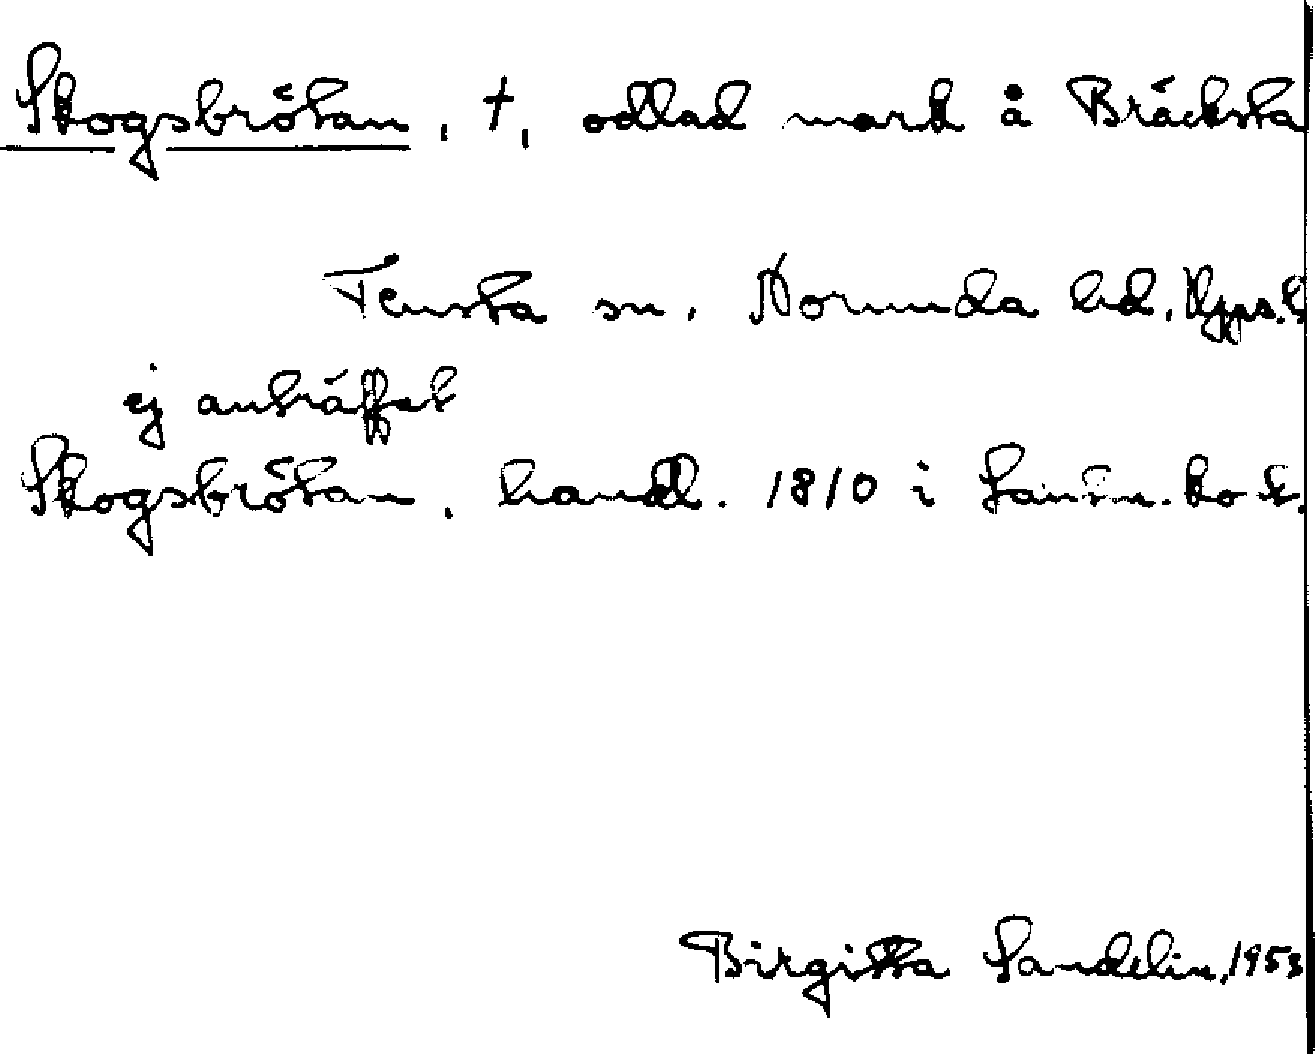 Skogsbrötan, †, odlad mark å Bräcksta
Tensta sn, Norunda hd, Upps. l
ej anträffat
Skogsbrötan, handl. 1810 i Lantm. kont.
Birgitta Sandelin, 1953